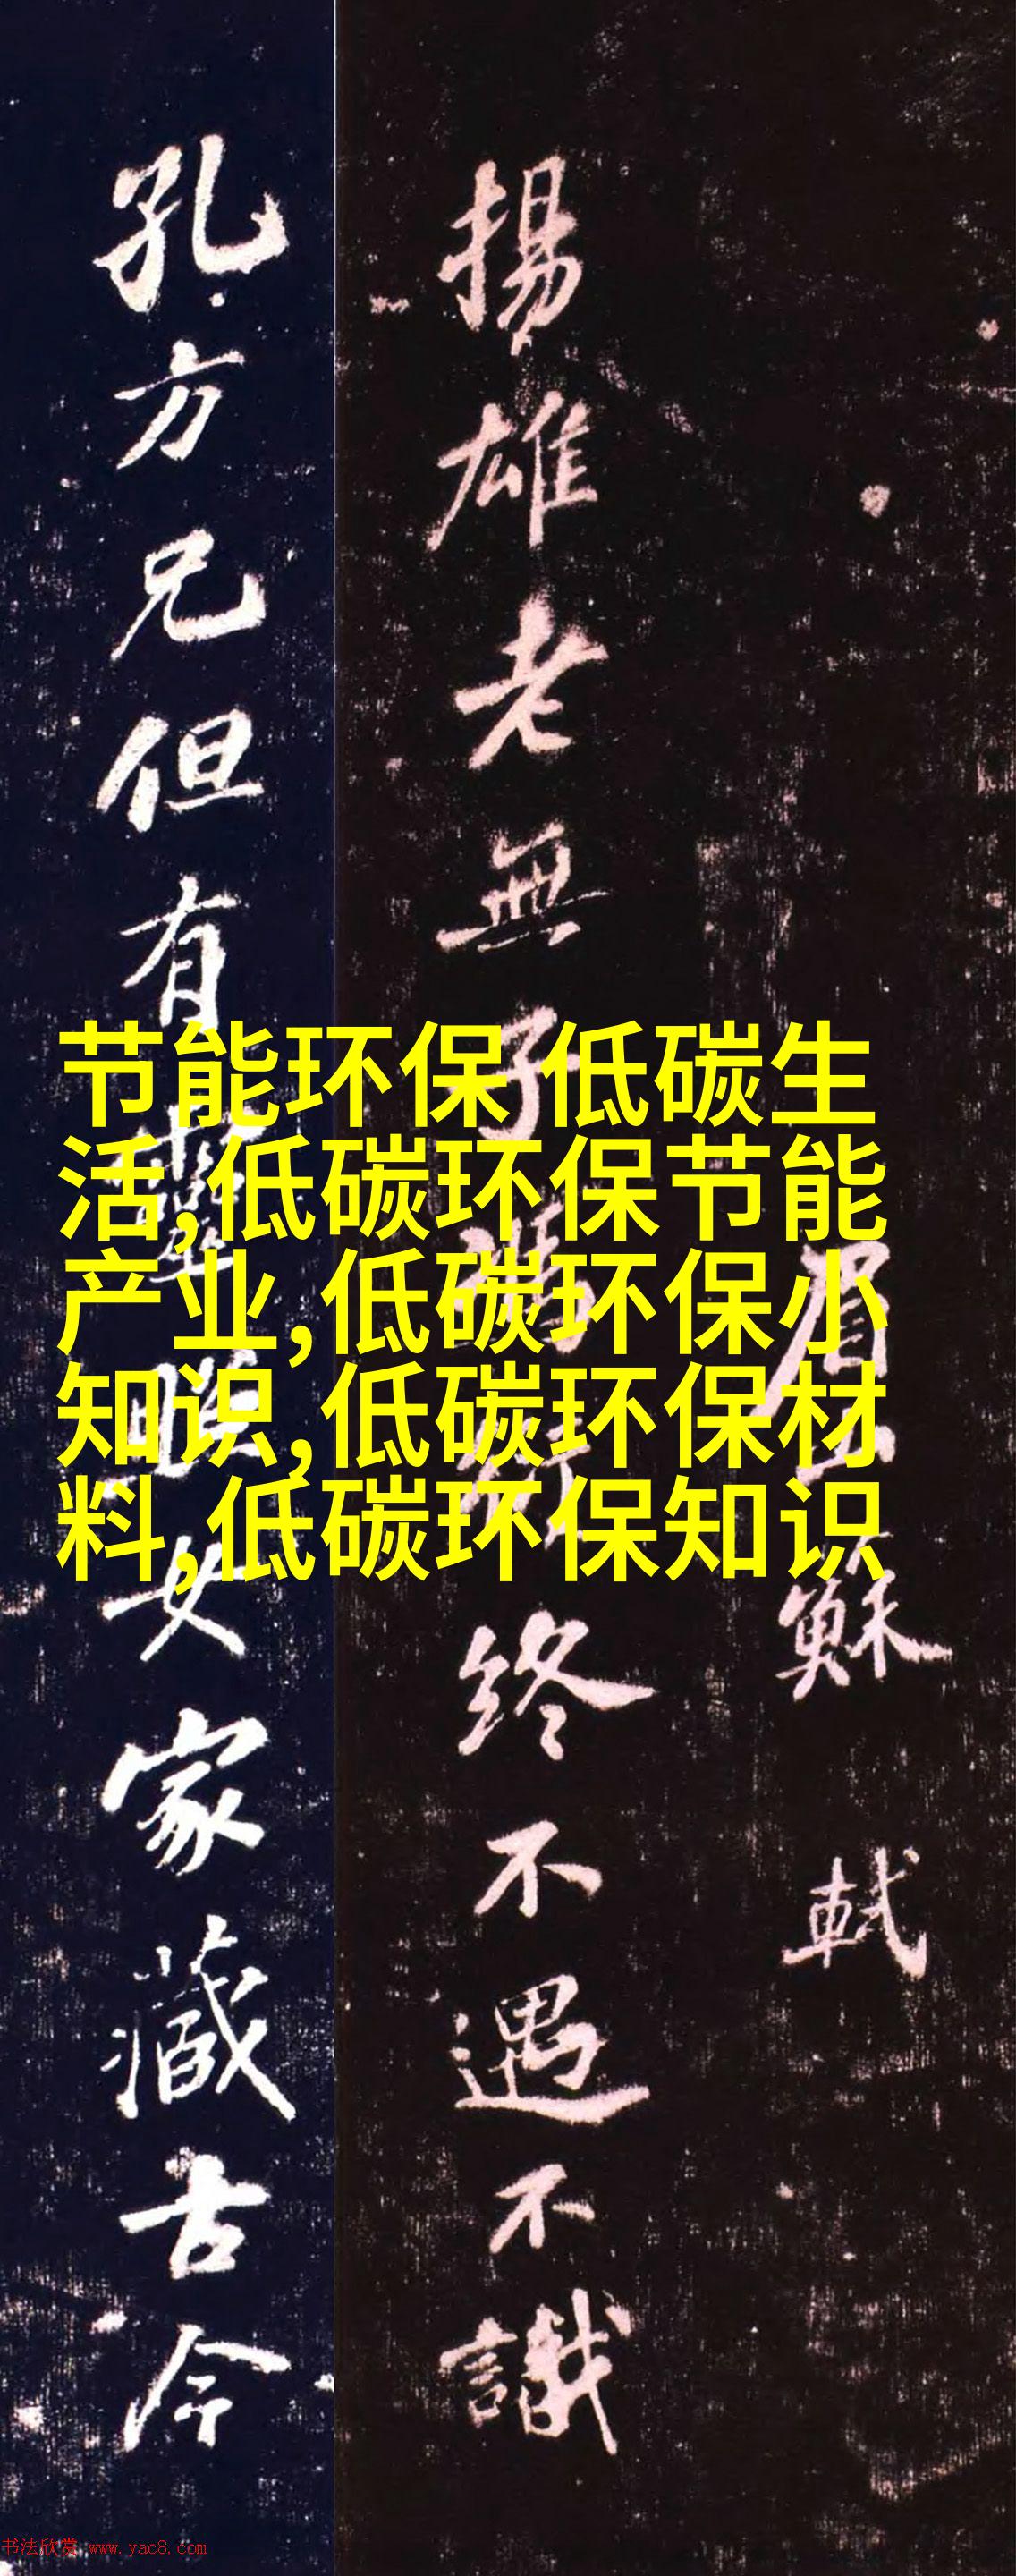 揚雄老無子
终不遇不識
眉山蘇軾
孔方兄但有
女家藏古今
节能环保 低碳生
活,低碳环保节能
产业,低碳环保小
知识,低碳环保材
料,低碳环保知识
书法欣赏 www.yac8.com